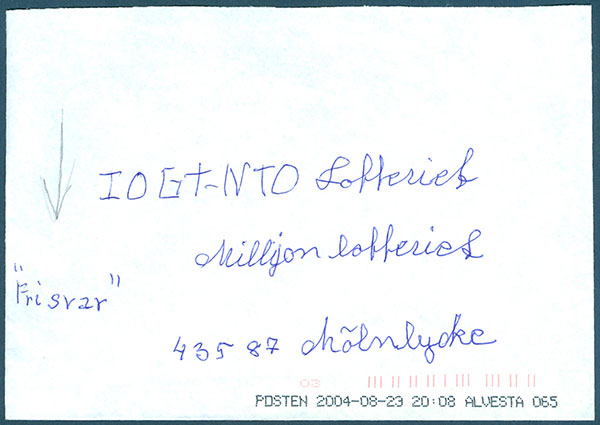 IOGT-NTO Lotteriet
Milljon lotteriet
"Frisvar"
435 87 Mölnlycke
03
POSTEN 2004-08-23 20:08 ALVESTA 065